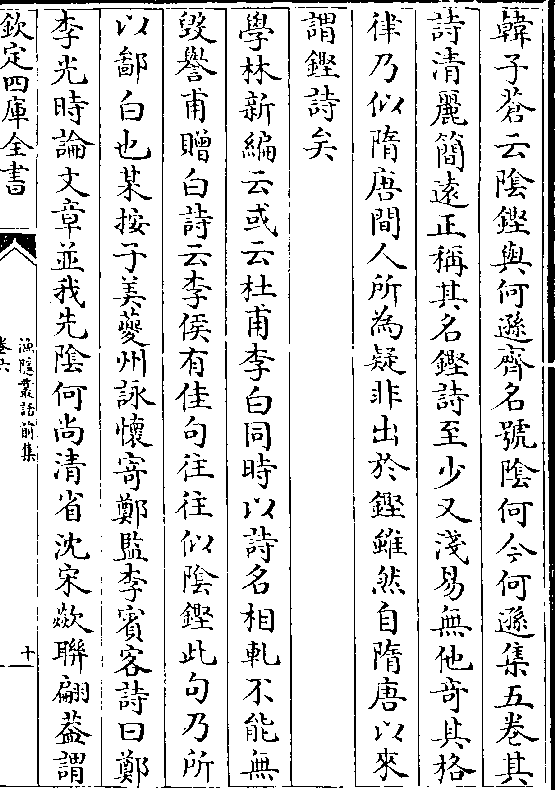 韓子蒼云陰鏗與何遜齊名號陰何今何遜集五卷其
詩清麗簡遠正稱其名鏗詩至少又淺易無他竒其格
律乃似隋唐間人所為疑非出於鏗雖然自隋唐以來
謂鏗詩矣
學林新編云或云杜甫李白同時以詩名相軋不能無
毁譽甫贈白詩云李侯有佳句往往似陰鏗此句乃所
以鄙白也某按子美夔州詠懷寄鄭監李賓客詩曰鄭
李光時論文章並我先陰何尚清省沈宋歘聯翩葢謂
欽定四庫全書
漁隱叢話前集
卷六
十